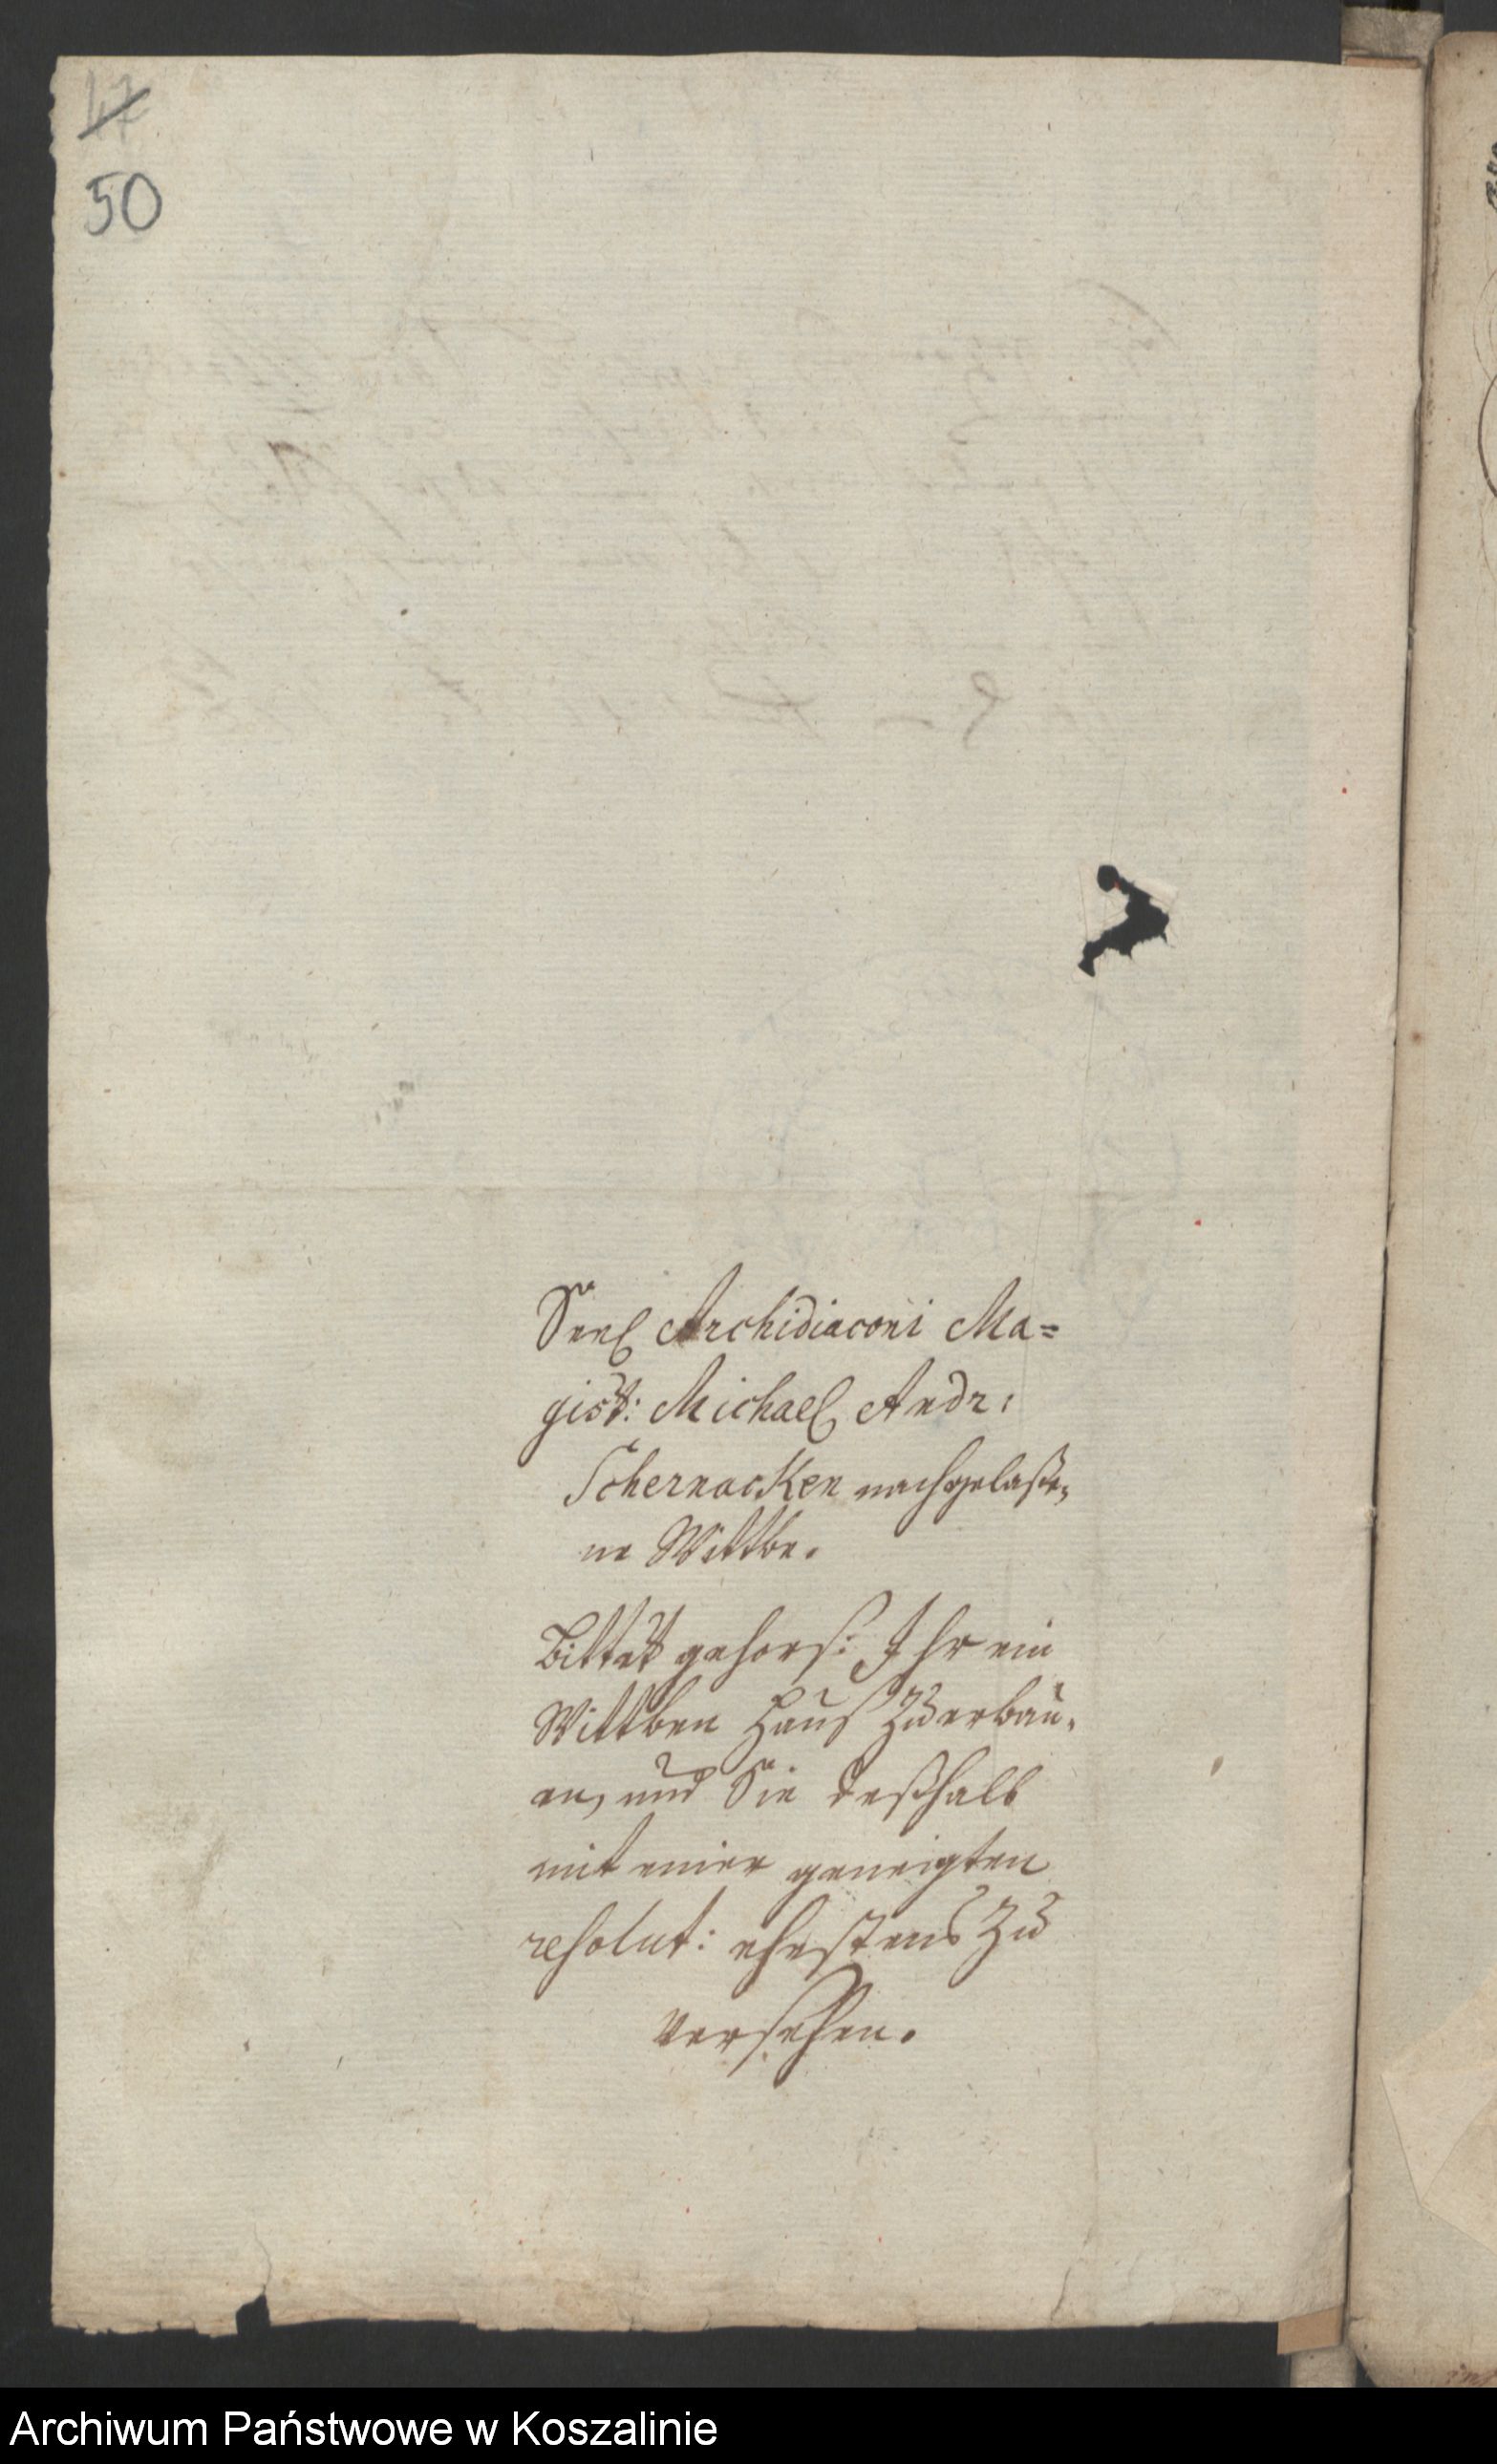 47
50
Seel Archidiaconi Ma=
gist: Michael Andr:
Schernacken nachgelaße=
ne Wittbe.
Bittet gehors: Ihr ein
Wittben Hauß zu erbau=
en, und Sie deßhalb
mit einer geneigten
resolut: ehestens zu
versehen.
Archiwum Państwowe w Koszalinie